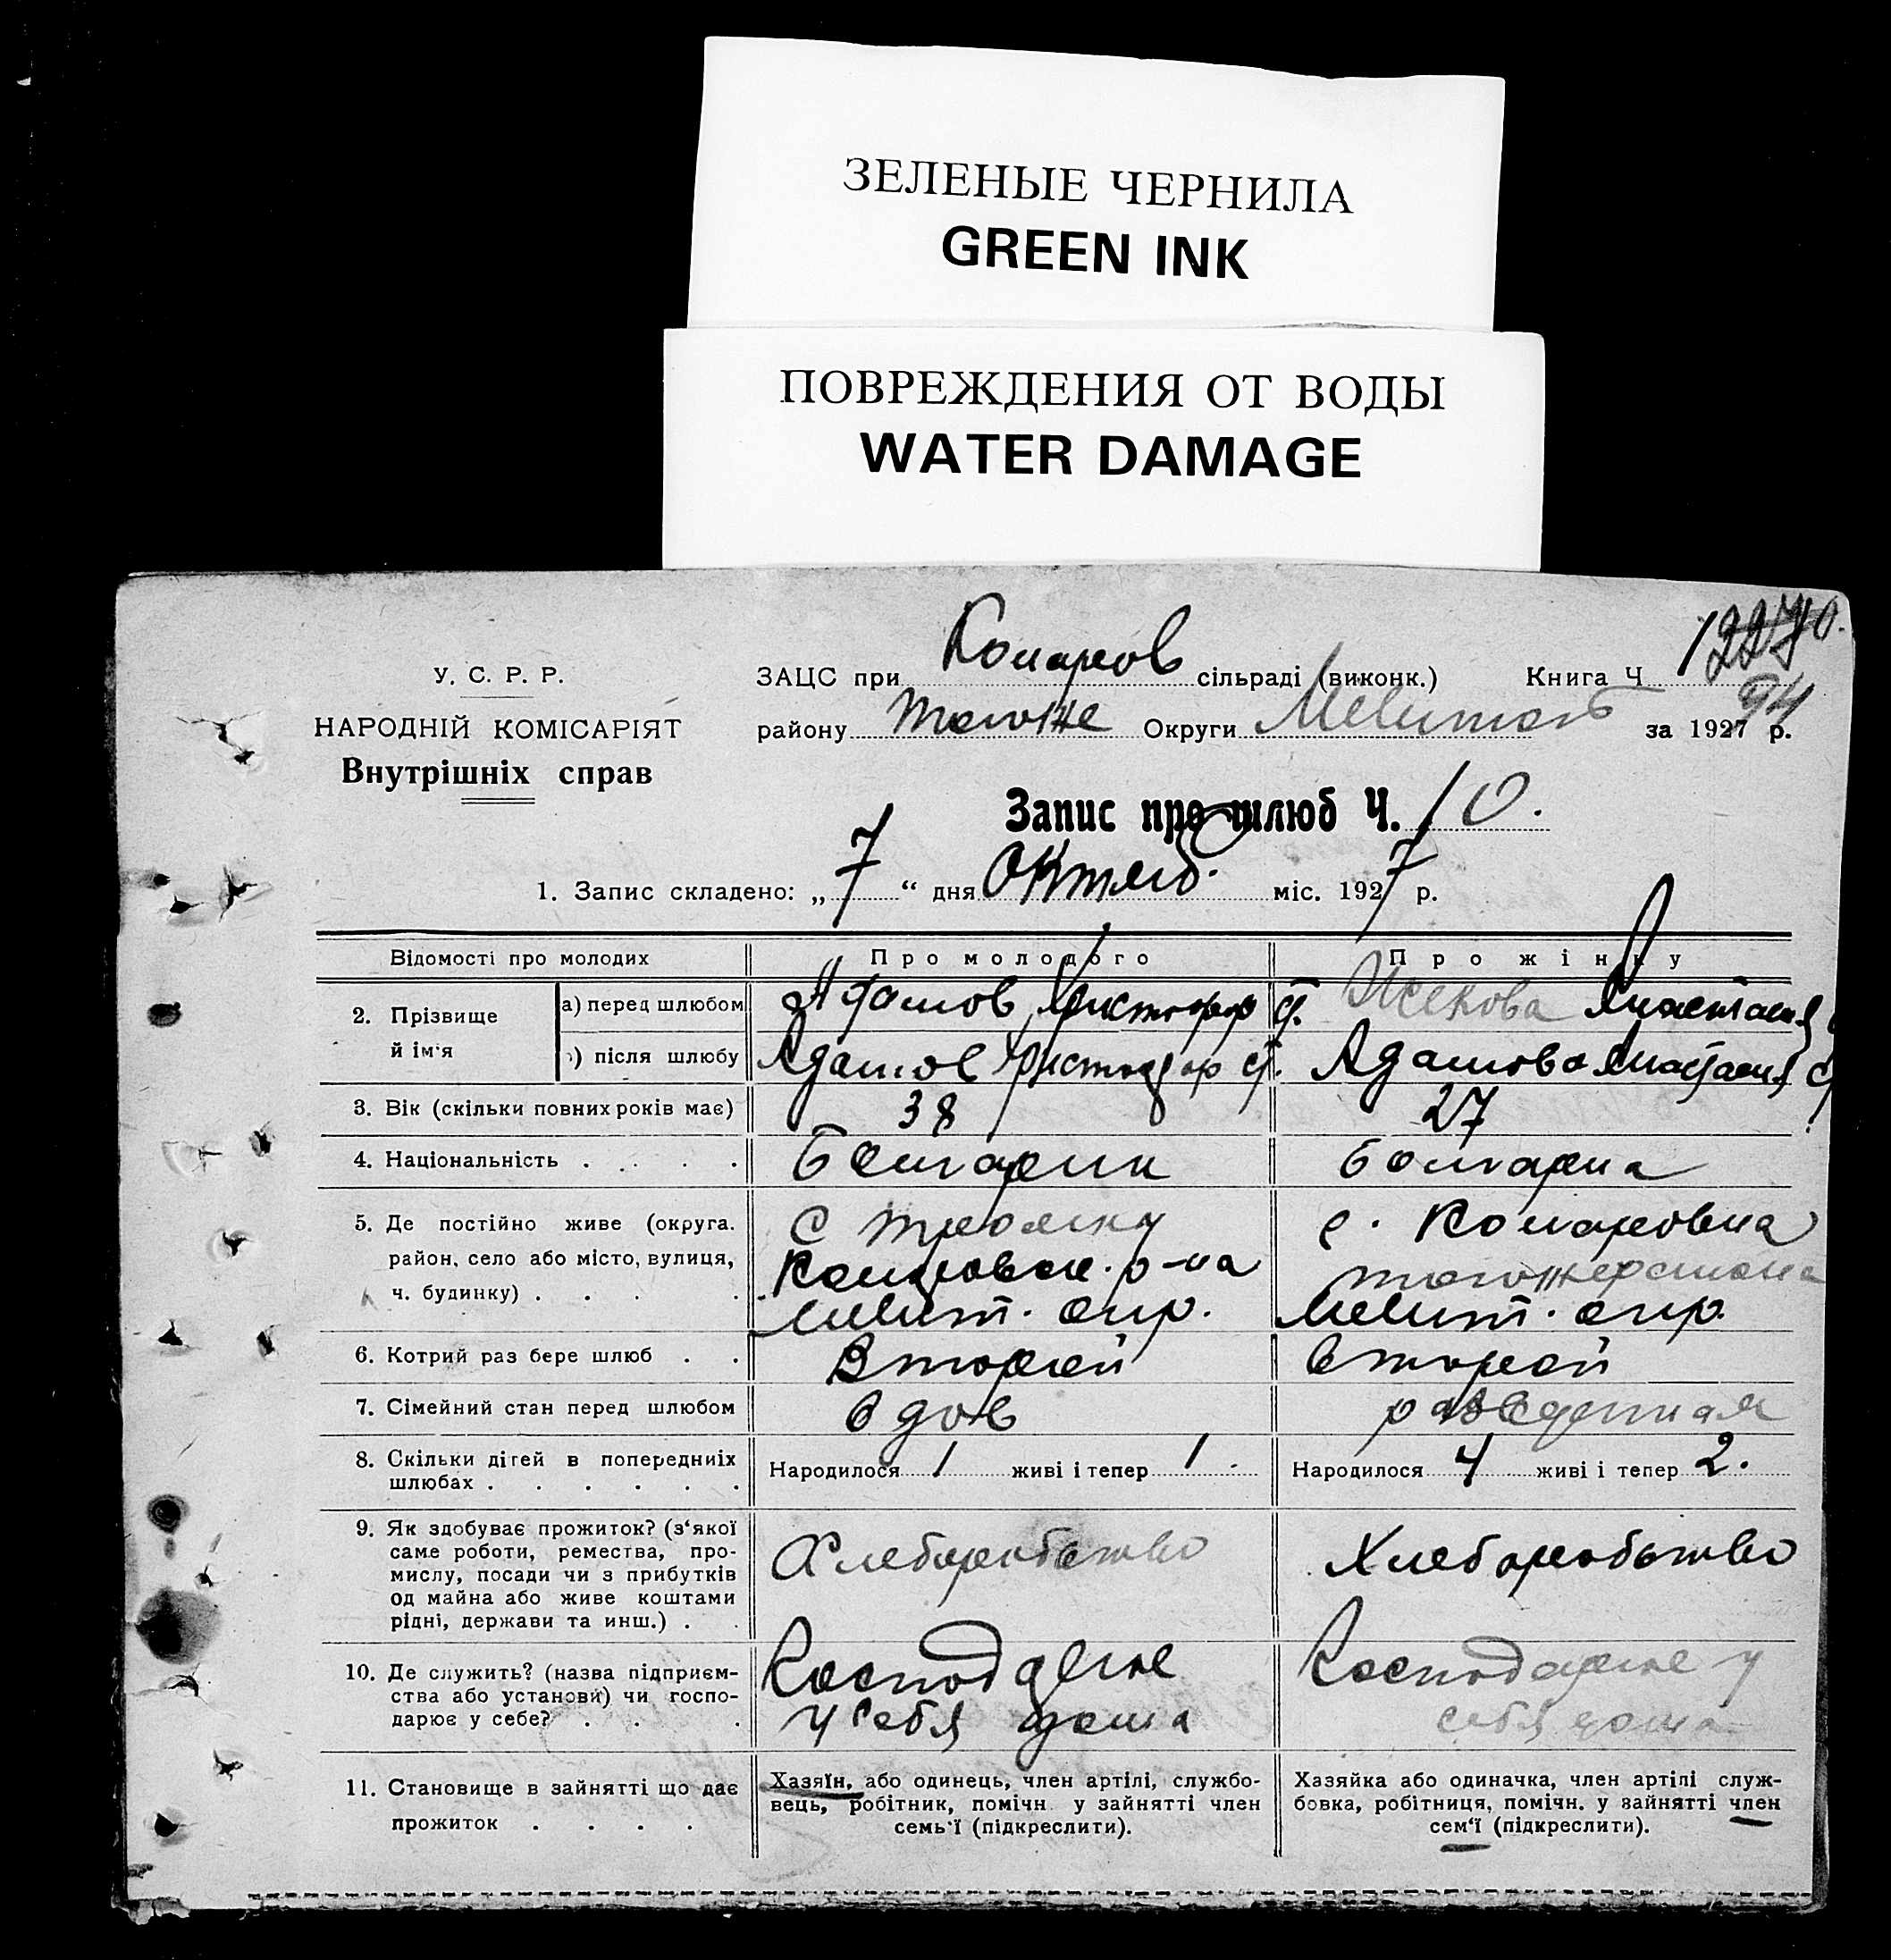 ЗЕЛЕНЫЕ ЧЕРНИЛА
GREEN INK
ПОВРЕЖДЕНИЯ ОТ ВОДЫ
WATER DAMAGE
У. С. Р. Р.
НАРОДНІЙ КОМІСАРІЯТ
Внутрішніх справ
ЗАЦС при Комаров сільраді (виконк.) Книга Ч
району Округи Мелитоп за 1927 р.
94
Запис про шлюб Ч. 10.
1. Запис складено: „7“ дня Октяб. міс. 1927 р.
Відомості про молодих Про молодого Про жінку
2. Прізвище й ім'я
а) перед шлюбом Адамов Христофор Ф. Анастасия
) після шлюбу Адамов Христофор Ф. Адамова Анастасия
3. Вік (скільки повних років має) 38 27
4. Національність . . . . Болгарин болгарка
5. Де постійно живе (округа. С Трояны с. Комаровка
район, село або місто, вулиця, р-на
ч. будинку) . . . . Мелит. окр. Мелит. окр.
6. Котрий раз бере шлюб . . Второй второй
7. Сімейний стан перед шлюбом вдов разведенная
8. Скільки дітей в попередниіх Народилося 1 живі і тепер 1. Народилося 4 живі і тепер 2.
шлюбах . . . . . .
9. Як здобуває прожиток? (з'якої
саме роботи, ремества, про-
мислу, посади чи з прибутків
од майна або живе коштами
рідні, держави та инш.) . .
Хлеборобство Хлеборобство
10. Де служить? (назва підприєм-
ства або установи) чи госпо-
дарює у себе? . . .
у себя дома
у
себя дома
11. Становище в зайнятті що дає
прожиток . . . .
Хазяїн, або одинець, член артілі, службо-
вець, робітник, помічн. у зайнятті член
семь'ї (підкреслити).
Хазяйка або одиначка, член артілі служ-
бовка, робітниця, помічн. у зайнятті член
сем'ї (підкреслити).